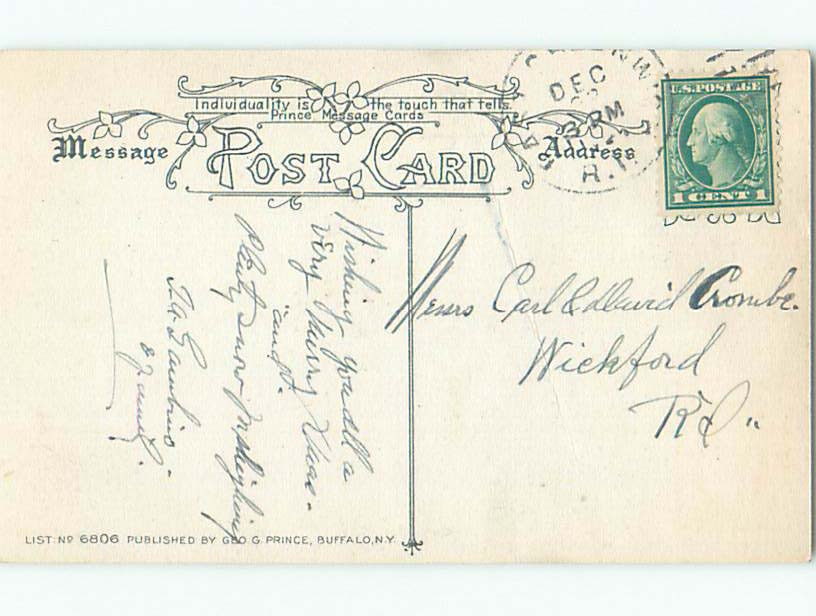 Individuality is the touch that tells.
Prince Message Cards
Message
POST CARD
Address
DEC
3 PM
R.I.
U.S. POSTAGE
1 CENT 1
Wishing you all a
very Merry Xmas -
"and"
Plenty snow for sleighing
& family.
Messrs Carl & David Crombe.
Wickford
R.I. "
LIST. No 6806 PUBLISHED BY GEO. G. PRINCE, BUFFALO, N.Y.